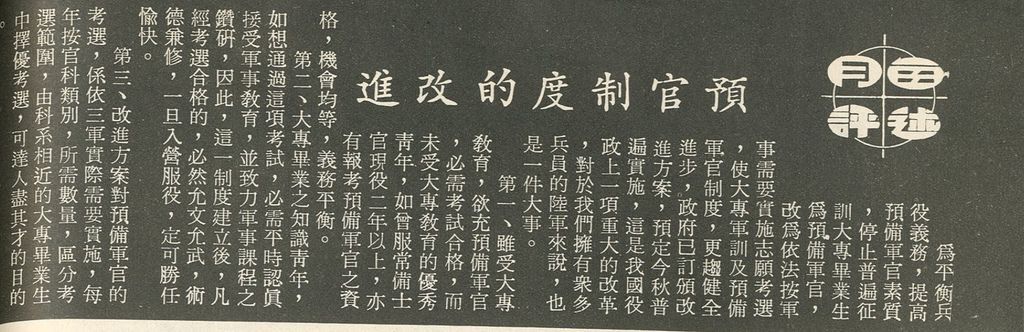 每月
述評
預官制度的改進
爲平衡兵
役義務，提高
預備軍官素質
，停止普遍徵
訓大專畢業生
爲預備軍官，
改爲依法按軍
事需要實施志願考選
，使大專軍訓及預備
軍官制度，更趨健全
進步，政府已訂頒改
進方案，預定今秋普
遍實施，這是我國役
政上一項重大的改革
，對於我們擁有衆多
兵員的陸軍來說，也
是一件大事。
第一、雖受大專
教育，欲充預備軍官
，必需考試合格，而
未受大專教育的優秀
靑年，如曾服常備士
官現役二年以上，亦
有報考預備軍官之資
格，機會均等，義務平衡。
第二、大專畢業之知識靑年，
如想通過這項考試，必需平時認眞
接受軍事教育，並致力軍事課程之
鑽研，因此，這一制度建立後，凡
經考選合格的，必然允文允武，術
德兼修，一旦入營服役，定可勝任
愉快。
第三、改進方案對預備軍官的
考選，係依三軍實際需要實施，每
年按官科類別，所需數量，區分考
選範圍，由科系相近的大專畢業生
中擇優考選，可達人盡其才的目的
。